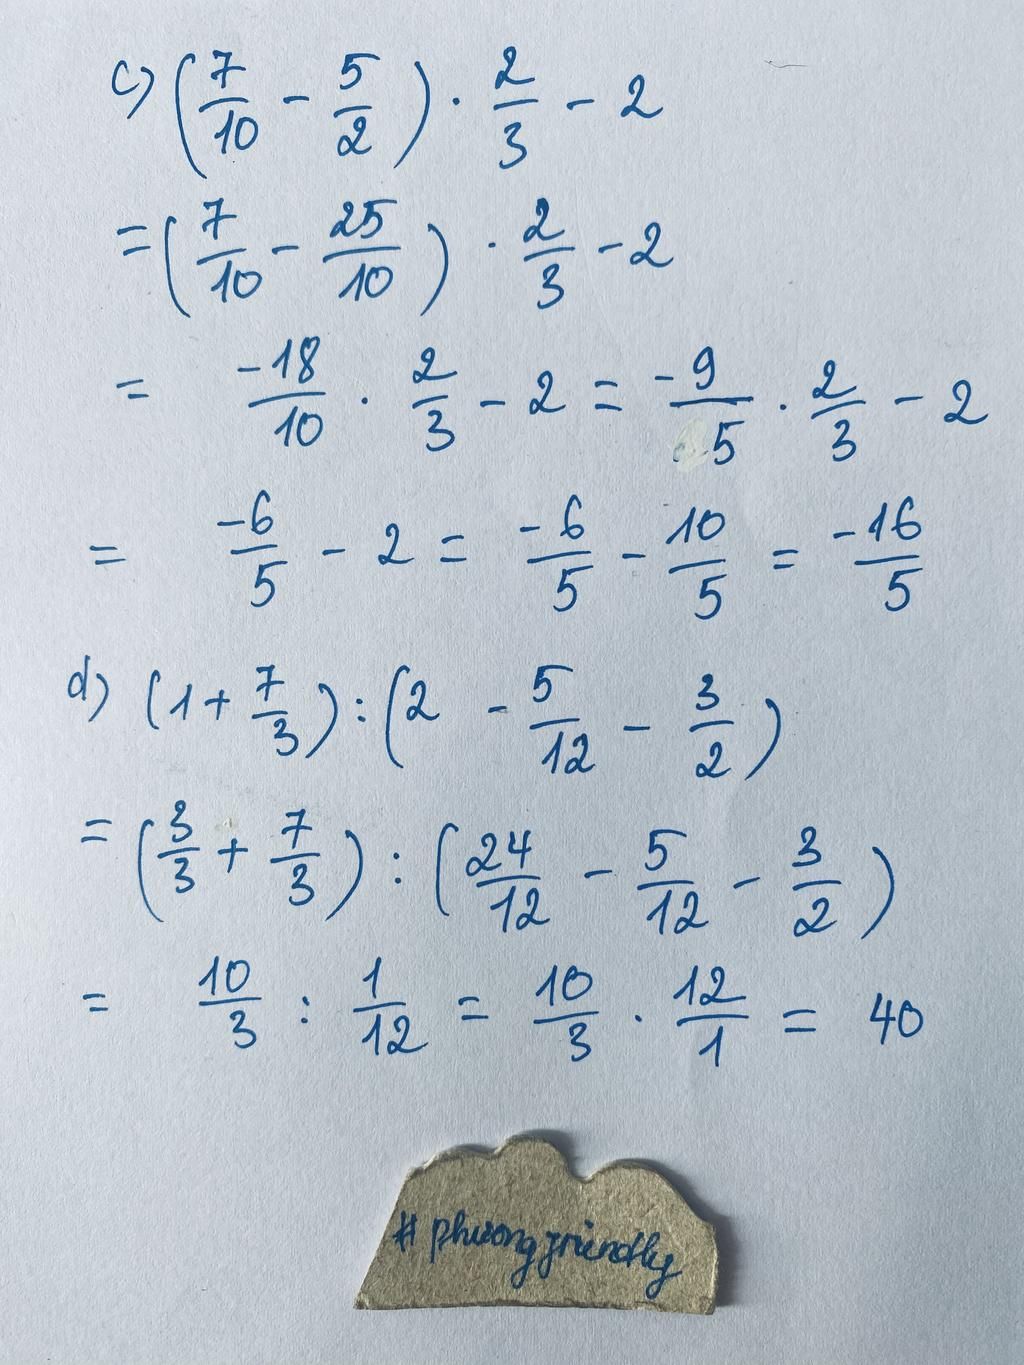 c) (7/10 - 5/2) · 2/3 - 2
= (7/10 - 25/10) · 2/3 - 2
= -18/10 · 2/3 - 2 = -9/5 · 2/3 - 2
= -6/5 - 2 = -6/5 - 10/5 = -16/5
d) (1 + 7/3) : (2 - 5/12 - 3/2)
= (3/3 + 7/3) : (24/12 - 5/12 - 3/2)
= 10/3 : 1/12 = 10/3 · 12/1 = 40
# phuongfriendly